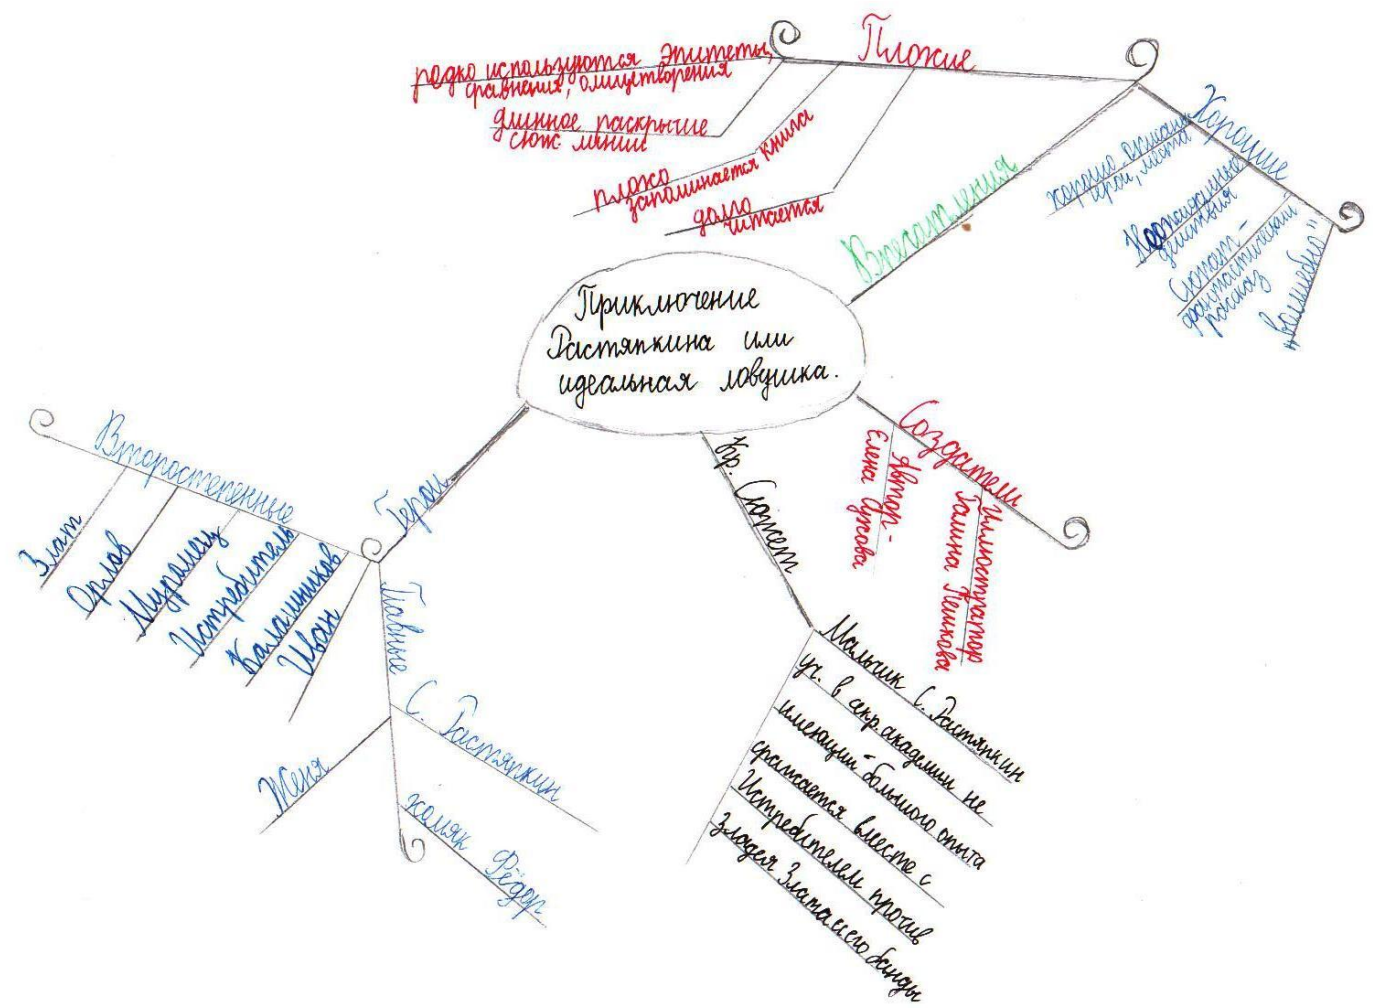 Приключение
Растяпкина или
идеальная ловушка.
Впечатления
Плохие
редко используются эпитеты,
сравнения, олицетворения
длинное раскрытие
сюж. линии
плохо
запоминается книга
долго
читается
Хорошие
хорошо описаны
герои, места
Неожиданные
действия
Сюжет -
фантастический
рассказ
"волшебно"
Создатели
Автор -
Елена Сухова
Иллюстратор
Галина Пешкова
Кр. Сюжет
Мальчик С. Растяпкин
уч. в акр. академии не
имеющий большого опыта
сражается вместе с
Истребителем против
Злодея Злата и его банды
Герои
Второстепенные
Злат
Орлов
Муромец
Истребитель
Калашников
Иван
Главные
С. Растяпкин
Женя
хомяк Фёдор